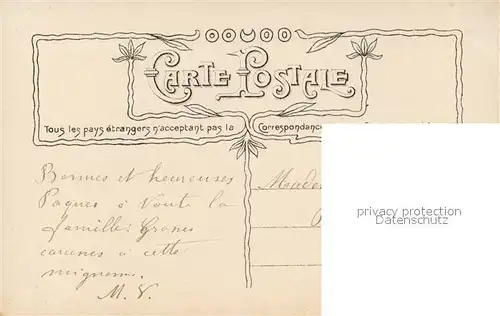 CARTE POSTALE
Tous les pays étrangers n'acceptant pas la Correspondance
Bonnes et heureuses
Paques à toute la
famille. Grosses
caresses à cette
mignonne.
M. V.
privacy protection
Datenschutz